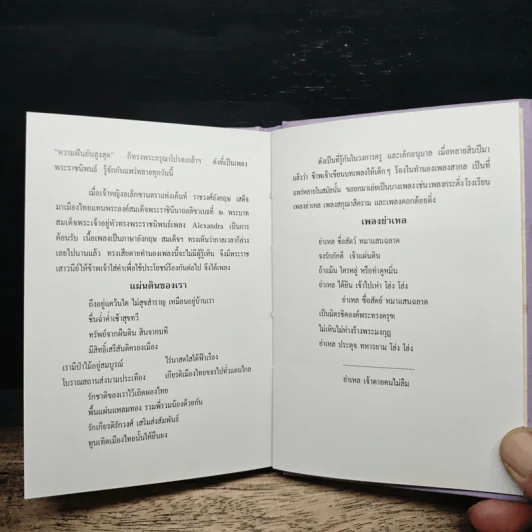 "ความฝันอันสูงสุด" ก็ทรงพระกรุณาโปรดเกล้าฯ ดังที่เป็นเพลง
พระราชนิพนธ์ รู้จักกันแพร่หลายทุกวันนี้
เมื่อเจ้าหญิงอเล็กซานดราแห่งเค้นท์ ราชวงศ์อังกฤษ เสด็จ
มาเมืองไทยแทนพระองค์สมเด็จพระราชินีนาถอลิซาเบธที่ ๒ พระบาท
สมเด็จพระเจ้าอยู่หัวทรงพระราชนิพนธ์เพลง Alexandra เป็นการ
ต้อนรับ เนื้อเพลงเป็นภาษาอังกฤษ สมเด็จฯ ทรงเห็นว่ากาลเวลาก็ล่วง
เลยไปนานแล้ว ทรงเสียดายทำนองเพลงนี้จะไม่มีผู้รู้เห็น จึงมีพระราช
เสาวนีย์ให้ข้าพเจ้าใส่คำเพื่อใช้ประโยชน์ร้องกันต่อไป จึงได้เพลง
แผ่นดินของเรา
ถึงอยู่แคว้นใด ไม่สุขสำราญ เหมือนอยู่บ้านเรา
ชื่นฉ่ำค่ำเช้าสุขทวี
ทรัพย์จากผืนดิน สินจากนที
มีสิทธิ์เสรีสันติครองเมือง
เรามีป่าไม้อยู่สมบูรณ์ ไร่นาสดใสใต้ฟ้าเรือง
โบราณสถานส่งนามประเทือง เกียรติเมืองไทยขจรไปทั่วแดนไกล
รักชาติของเราไว้เถิดผองไทย
ผืนแผ่นแหลมทอง รวมพี่รวมน้องด้วยกัน
รักเกียรติรักวงศ์ เสริมส่งสัมพันธ์
ทูนเทิดเมืองไทยนั้นให้ยืนยง
ดังเป็นที่รู้กันในวงการครู และเด็กอนุบาล เมื่อหลายสิบปีมา
แล้วว่า ข้าพเจ้าเขียนบทเพลงให้เด็กๆ ร้องในทำนองเพลงสากล เป็นที่
แพร่หลายในสมัยนั้น ขอยกมาเอ่ยเป็นบางเพลง เช่น เพลงกระดิ่งโรงเรียน
เพลงย่าเหล เพลงสกุณาสีคราม และเพลงดอกต้อยติ่ง
เพลงย่าเหล
ย่าเหล ชื่อสัตว์ หมาแสนฉลาด
จงรักภักดี เจ้าแผ่นดิน
ถ้าแม้น ใครหลู่ หรือทำดูหมิ่น
ย่าเหล ได้ยิน เข้าไปเห่า โฮ่ง โฮ่ง
ย่าเหล ชื่อสัตย์ หมาแสนฉลาด
เป็นมิตรชิดองค์พระทรงครุฑ
ไม่เหินไม่ห่างร้างพระมงกุฎ
ย่าเหล ประดุจ ทหารยาม โฮ่ง โฮ่ง
ย่าเหล เจ้าตายคนไม่ลืม